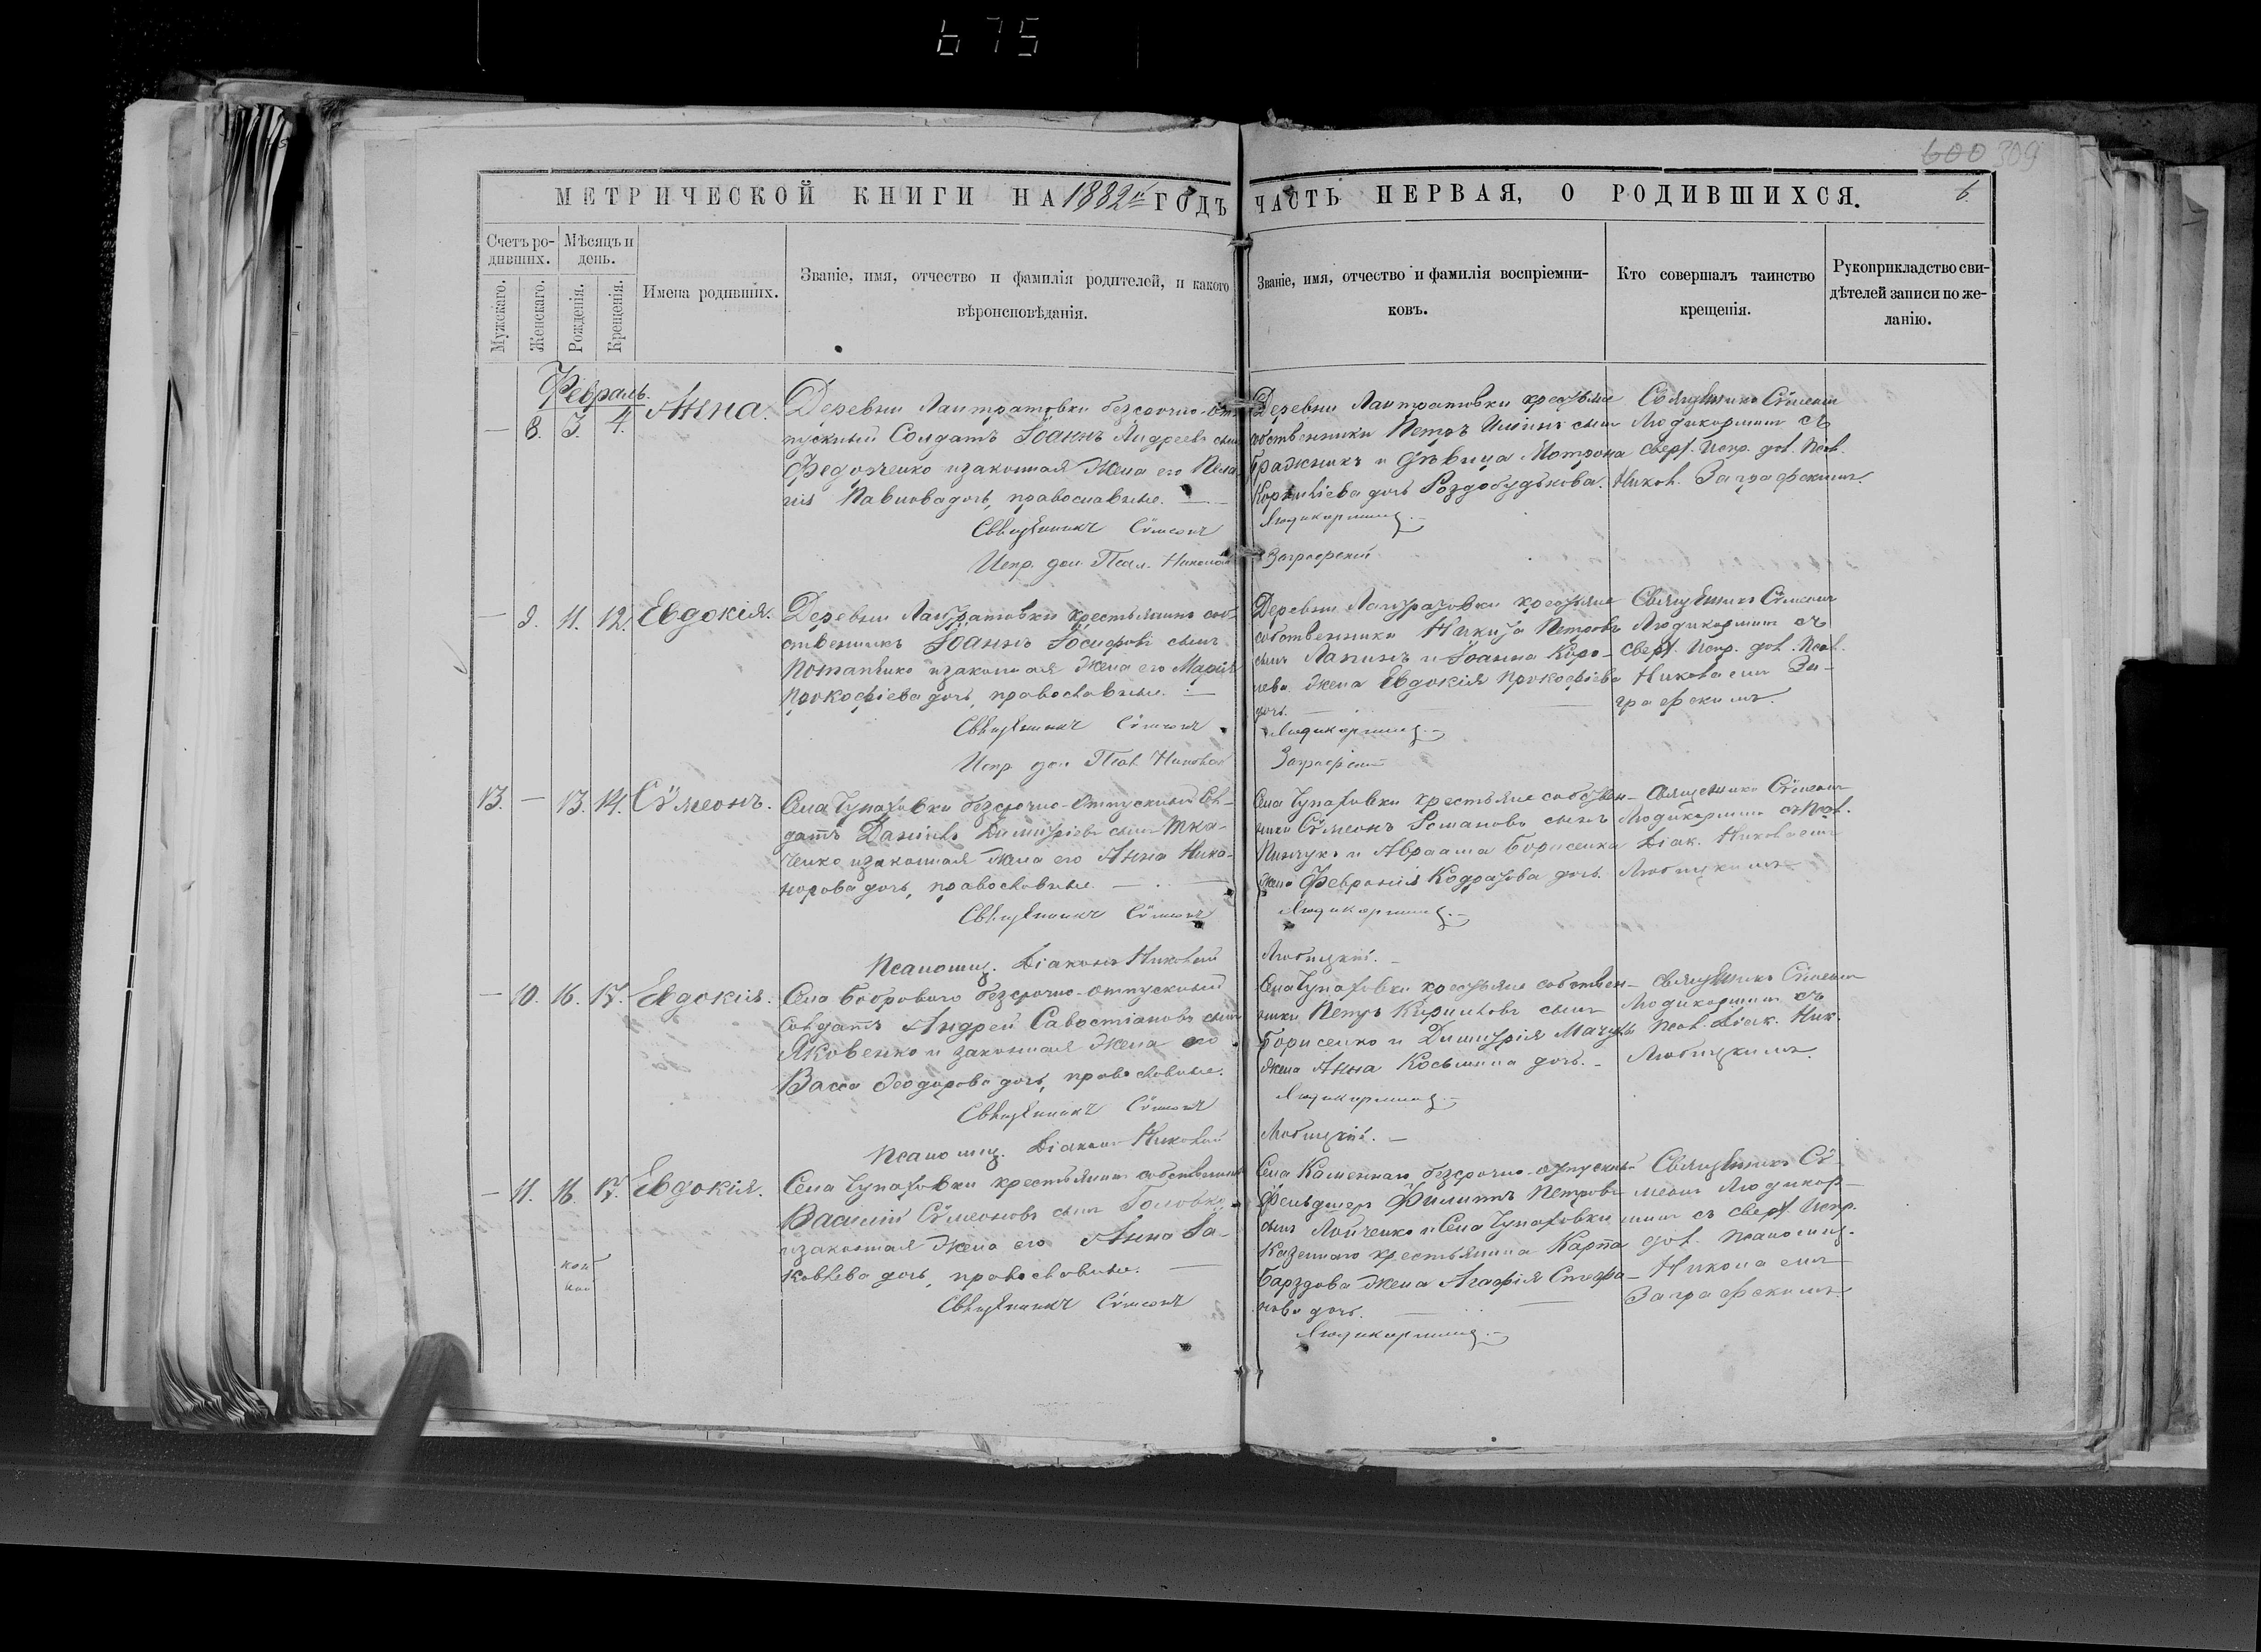 675
600 309
МЕТРИЧЕСКОЙ КНИГИ НА 1882й ГОДЪ
ЧАСТЬ ПЕРВАЯ, О РОДИВШИХСЯ.
6.
Счетъ ро-
дивших.
Мѣсяцъ и
день.
Мужскаго.
Женскаго.
Рожденія.
Крещенія.
Имена родивших.
Званіе, имя, отчество и фамилія родителей, и какого
вѣроисповѣданія.
Званіе, имя, отчество и фамилія воспріемни-
ковъ.
Кто совершалъ таинство
крещенія.
Рукоприкладство сви-
дѣтелей записи по же-
ланію.
Февраль.
— 8. 3. 4. Анна.
Деревни безсрочно-от-
пускный Солдатъ Іоаннъ Андреевъ сынъ
Федорченко и законная жена его Пела-
гія Павлова дочь, православные.
Священникъ Сѵмеонъ
Испр. дол. Псал. Николай
Деревни крестьяне
собственники Петръ Ильинъ сынъ
Бражникъ и дѣвица Мотрона
Корнилієва дочь Роздобудькова.
Людикорминъ
Заграфскій
Священникъ Сѵмеонъ
Людикорминъ съ
сверх. Испр. дол. Псал.
Никол. Заграфскимъ.
— 9. 11. 12. Евдокія.
Деревни крестьянинъ соб-
ственникъ Іоаннъ Іосифовъ сынъ
Потапенко и законная жена его Марія
Прокофіева дочь, православные.
Священникъ Сѵмеонъ
Испр. дол. Псал. Николай
Деревни крестьяне
собственники Никита Петровъ
сынъ Лапинъ и Іоанна Коро-
нева жена Евдокія Прокофіева
дочь.
Людикорминъ
Заграфскій
Священникъ Сѵмеонъ
Людикорминъ съ
сверх. Испр. дол. Псал.
Николаемъ За-
графскимъ.
13. — 13. 14. Сѵмеонъ.
Села Чупаховки безсрочно-отпускный Сол-
датъ Даніилъ Димитріевъ сынъ Тка-
ченко и законная жена его Анна Ника-
норова дочь, православные.
Священникъ Сѵмеонъ
Псаломщ. Діаконъ Николай
Села Чупаховки крестьяне собствен-
ники Сѵмеонъ Романовъ сынъ
Пинчукъ и Авраама Борисенка
жена Февронія Кодратова дочь.
Людикорминъ
Любицкій.
Священникъ Сѵмеонъ
Людикорминъ съ Псал.
Діак. Николаемъ
Любицкимъ
— 10. 16. 17. Евдокія.
Села Боброваго безсрочно-отпускный
Солдатъ Андрей Савостіановъ сынъ
Яковенко и законная жена его
Васса Ѳеодорова дочь, православные.
Священникъ Сѵмеонъ
Псаломщ. Діаконъ Николай
Села Чупаховки крестьяне собствен-
ники Петръ Кириловъ сынъ
Борисенко и Димитрія
жена Анна Косьмина дочь.
Людикорминъ
Любицкій.
Священникъ Сѵмеонъ
Людикорминъ съ
Псал. Діак. Ник.
Любицкимъ.
— 11. 16. 17. Евдокія.
Села Чупаховки крестьянинъ собственникъ
Василій Сѵмеоновъ сынъ Головко
и законная жена его Анна Іа-
ковлева дочь, православные.
Священникъ Сѵмеонъ
Села Каменнаго безсрочно-отпускный
Фельдшеръ Филиппъ Петровъ
сынъ и Села Чупаховки
Казеннаго крестьянина Карпа
жена Агафія Стефа-
нова дочь.
Людикорминъ
Священникъ Сѵ-
меонъ Людикор-
минъ съ сверх. Испр.
дол. Псаломщ.
Николаемъ
Заграфскимъ